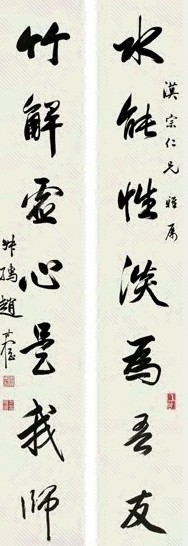 宗仁兄雅屬
水能性淡為吾友
竹解虛心是我師
叔孺趙時棡